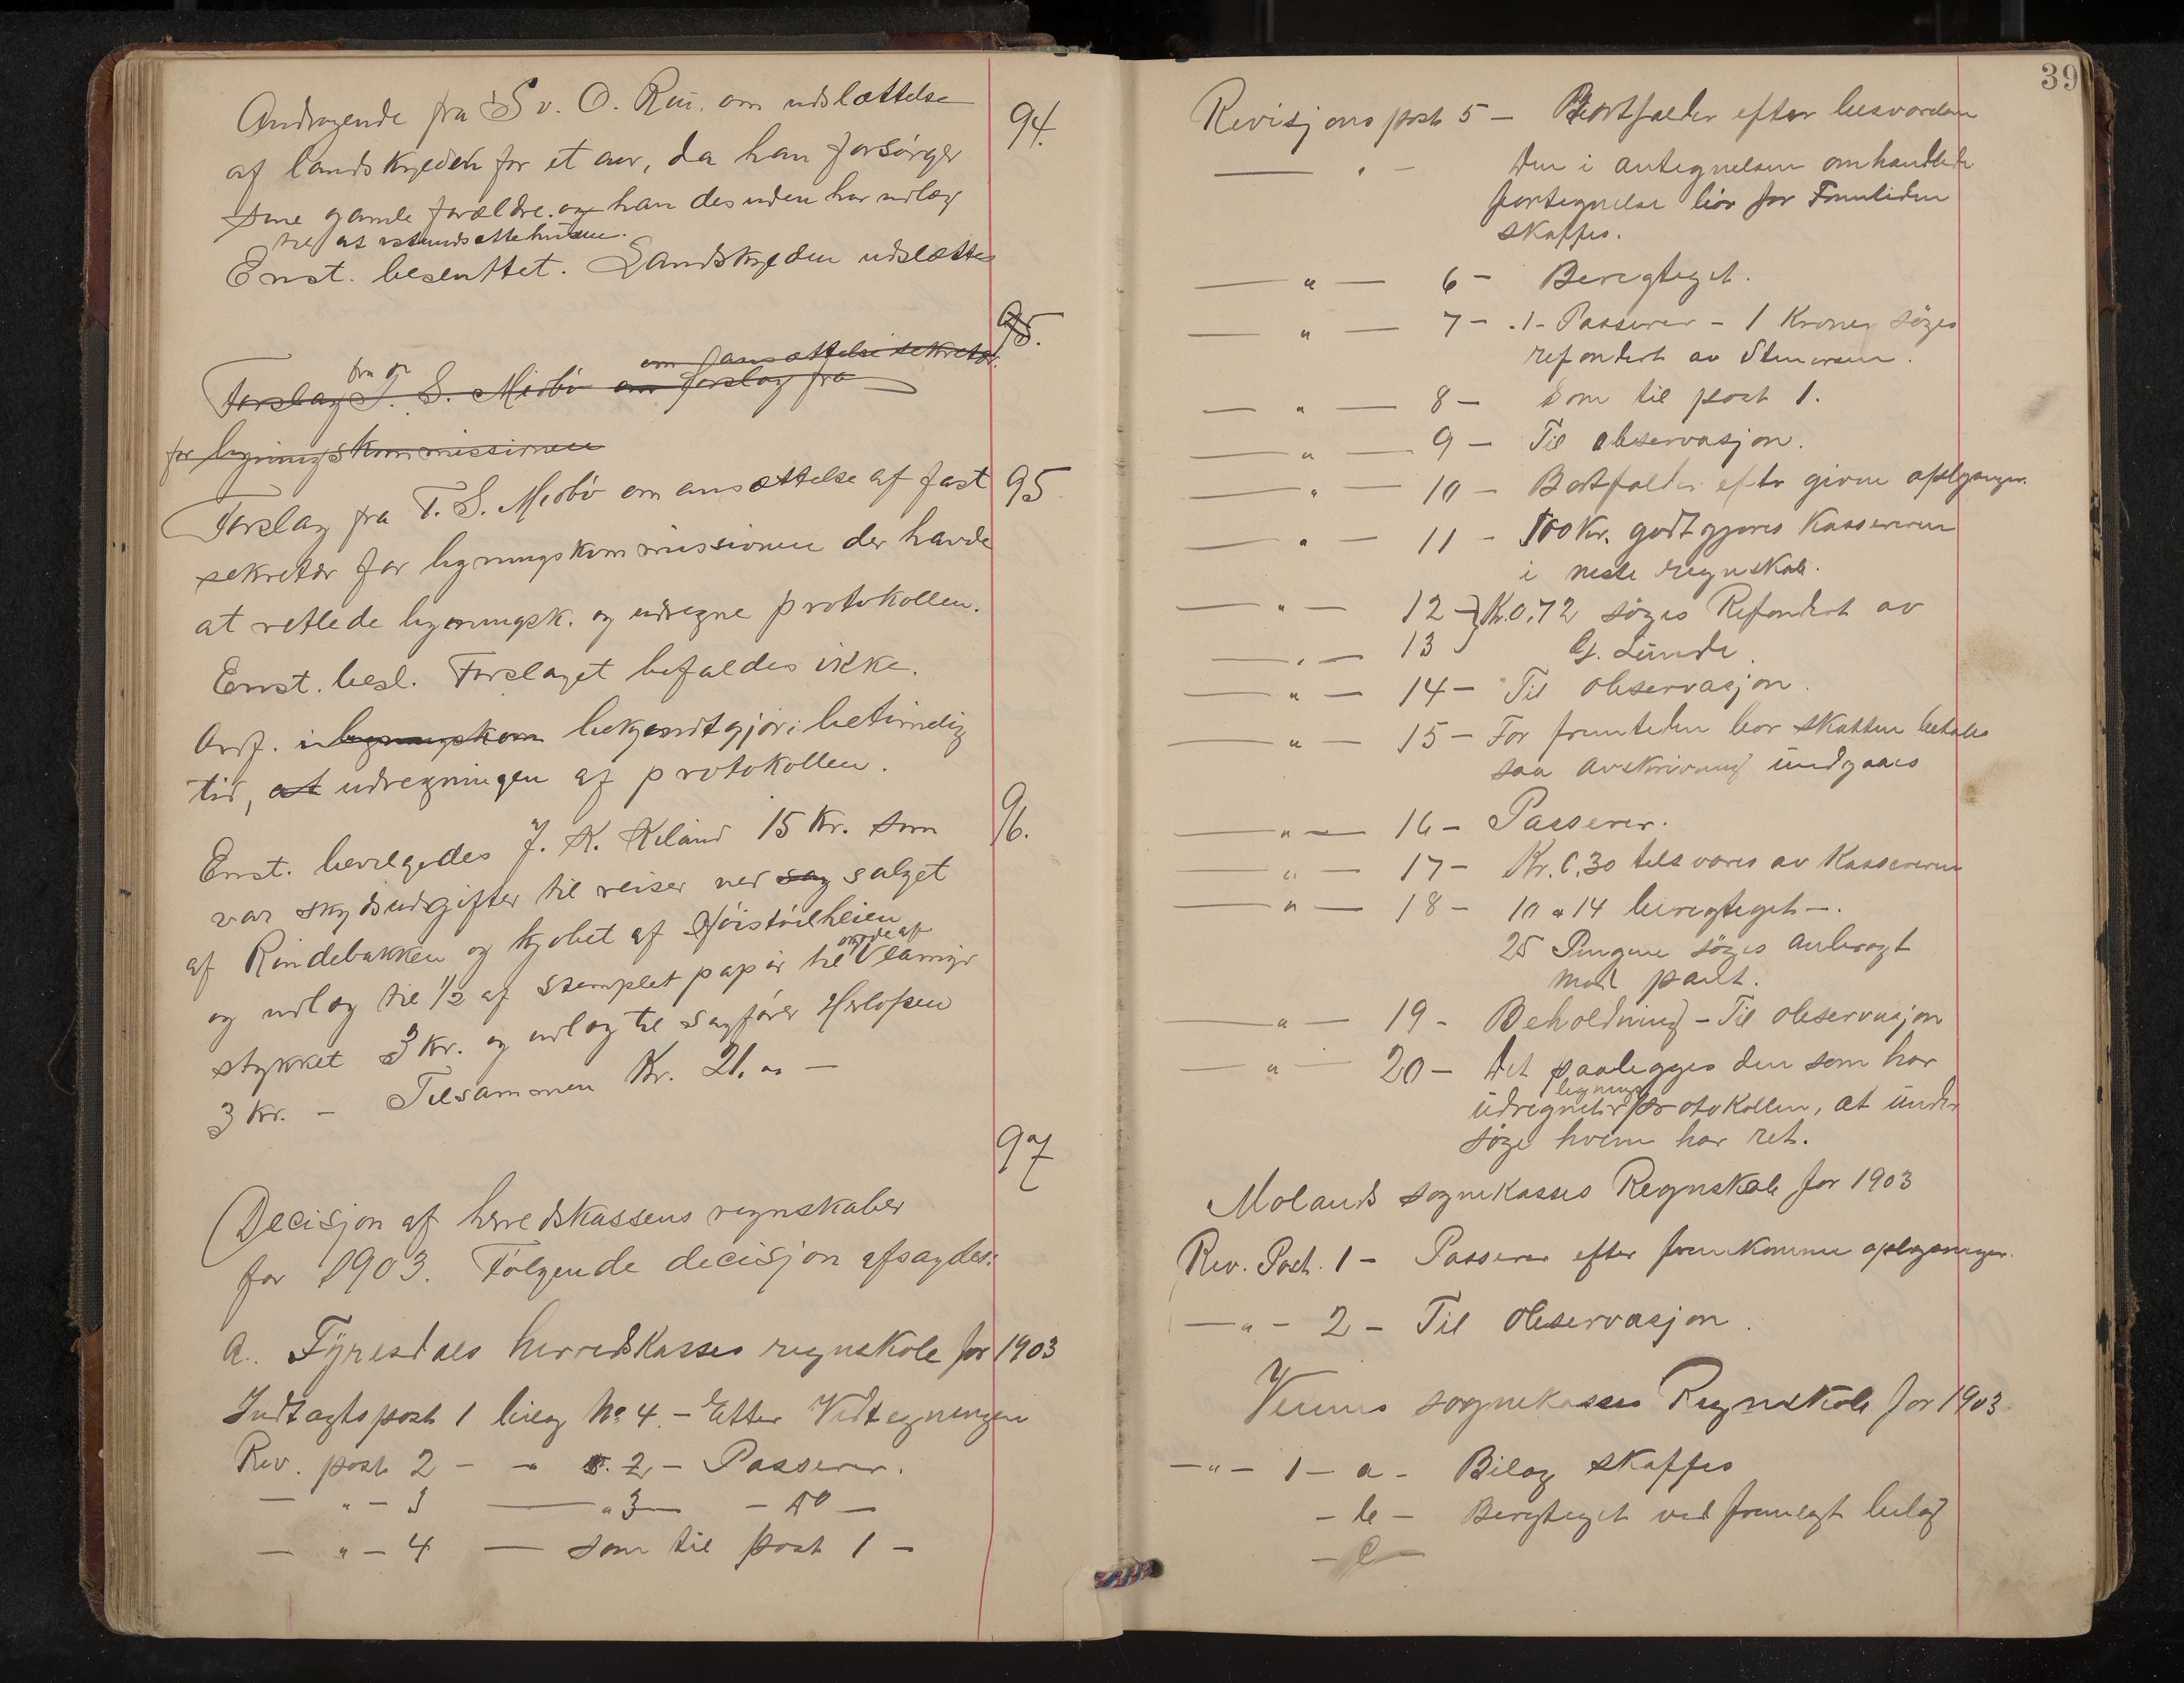 Andragende fra Sv. O. Rui. om udslættelse
94.
af landskylden for et aar, da han forsörger
sine gamle forældre. og han desuden har udlæg
til at istandsætte husene.
Enst. besluttet. Landskylden udslættes
95.
fra og om ansættelse sekretær.
Forslag T. S. Miobö om forslag fra
for ligningskommissionen
Forslag fra T. S. Miobö om ansættelse af fast
95
sekretær for ligningskommissionen der havde
at vetlede ligningsk. og udregne protokollen.
Enst. besl. Forslaget bifaldes ikke.
Ordf. bekgendtgjör i betimelig
tid, at udregningen af protokollen.
96.
Enst. bevilgedes J. K. Kiland 15 Kr. som
var skydsudgifter til reiser ved sag salget
af Rindebakken og kjöbet af Höistöilheien
og udlæg til 1/2 af stemplet papir til skjöde af
stykket 3 Kr. og udlæg til sagförer Herlofsen
3 Kr. - Tilsammen Kr. 21. -
97
Decisjon af herredskassens regnskaber
for 1903. Fölgende decisjon afsagdes:
a.. Fyresdals herredskasses regnskab for 1903
Indtægtspost 1 bilag No 4. - Efter Vidtegningen
Rev. post 2 - " 2 - Passerer.
— " - 3 — " 3 — - do —
— " - 4 — som til post 1 -
39
Revisjons post 5 - Bortfalder efter besvarelsen
— " - Den i antegnelsen omhandlede
fortegnelse bör for Fremtiden
skaffes.
— " — 6 - Berigtiget.
— " — 7 - .1- Passerer - 1 Krone söges
refondert av Stenersen.
— " — 8 - Som til post 1.
— " — 9 - Til observasjon.
— " — 10 - Bortfalder efter givne oplysninger.
— " — 11 - 100 Kr. godtgjöres Kassereren
i neste regnskab.
— " — 12 - } Kr. 0,72 söges Refondert av
— " — 13 G. Lunde.
— " — 14 - Til observasjon.
— " — 15 - For fremtiden bör skatten betales
saa avskrivning undgaaes
— " — 16 - Passerer.
— " — 17 - Kr. 0,30 tilsvares av Kassereren
— " — 18 - 10 a 14 berigtiget -.
25 Pengene söges anbragt
mod pant.
— " — 19 - Beholdning - Til observasjon
— " — 20 - Det paalegges den som har
udregnet lignings protokollen, at under
söge hvem har ret.
Molands sognekasses Regnskab for 1903
Rev. Post. 1 - Passerer efter fremkomne oplysninger.
— " - 2 - Til observasjon.
Veums sognekasses Regnskab for 1903
— " — 1 - a - Bilag skaffes
- b - Berigtiget ved fremlagt bilag
- c —